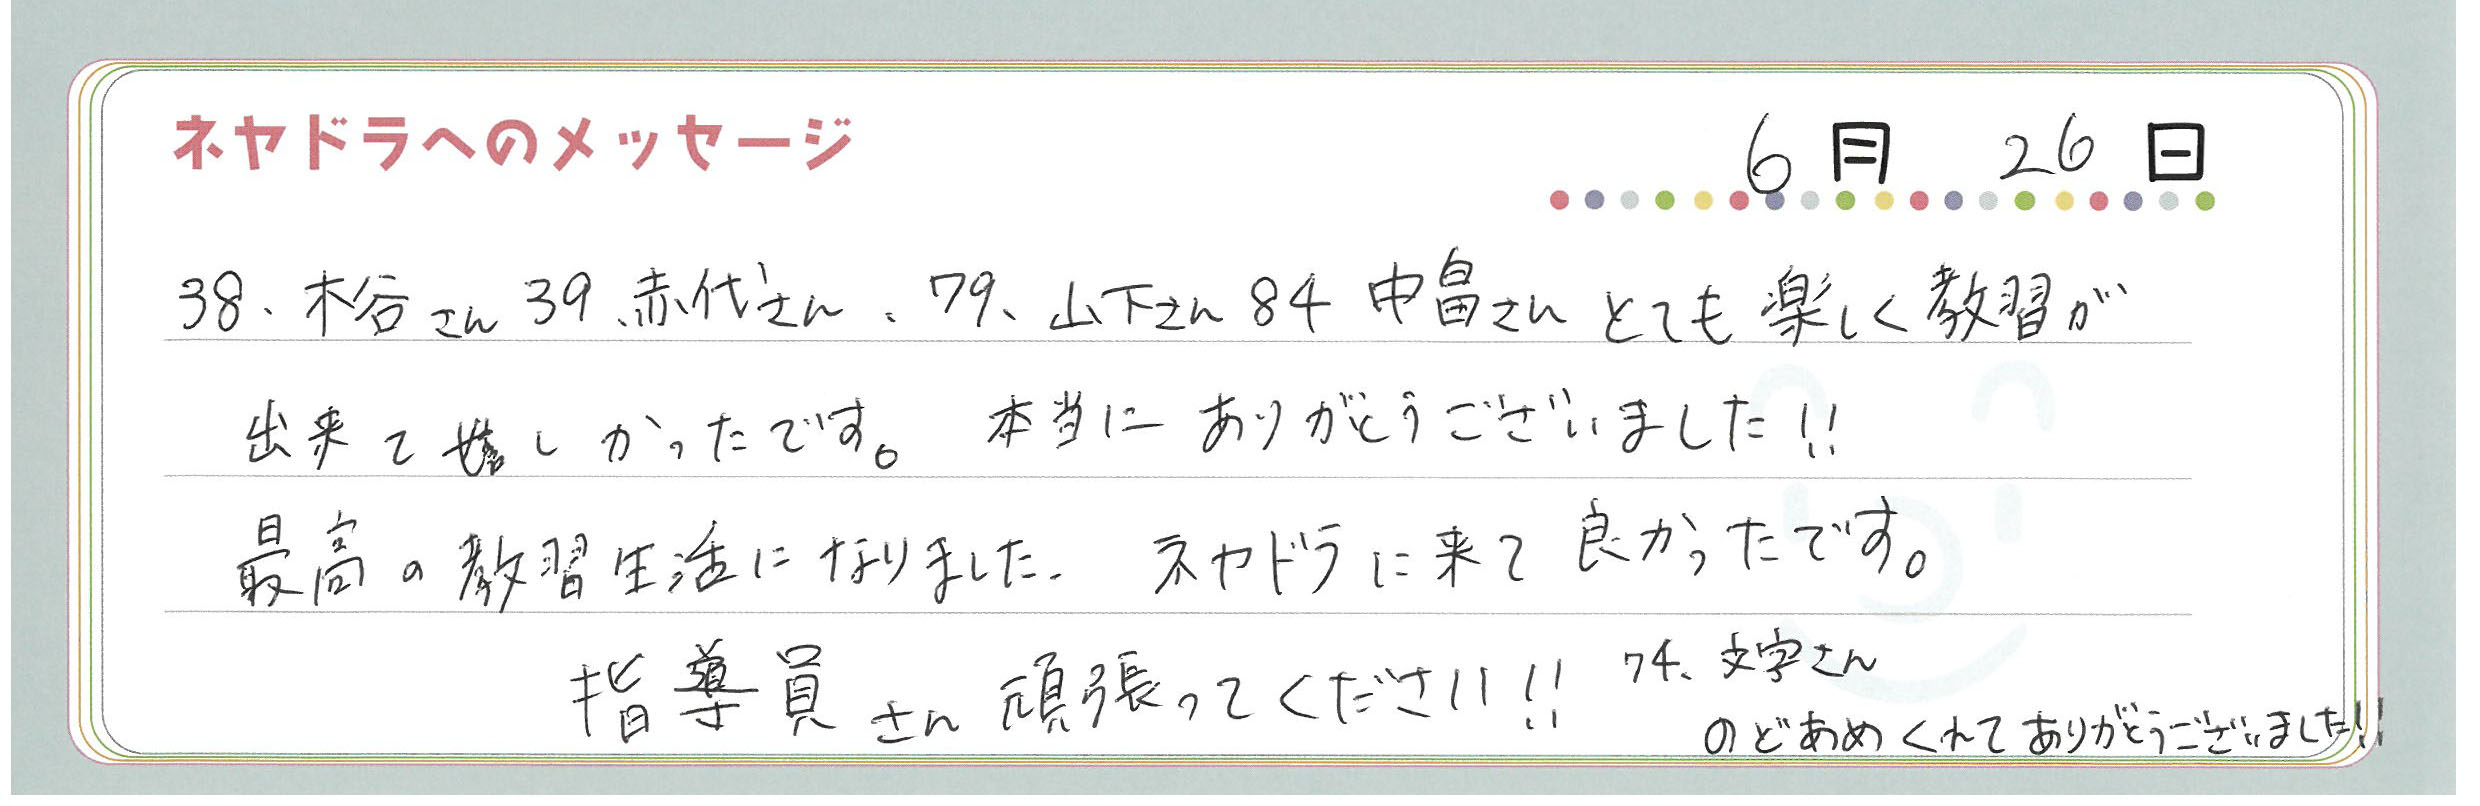 ネヤドラへのメッセージ
6月 26日
38、木谷さん 39、赤代さん、79、山下さん 84 中畠さん とても楽しく教習が
出来て嬉しかったです。 本当に ありがとうございました!!
最高の教習生活になりました. ネヤドラに来て良かったです。
指導員さん頑張ってください!!
74、文字さん
のどあめくれてありがとうございました!!